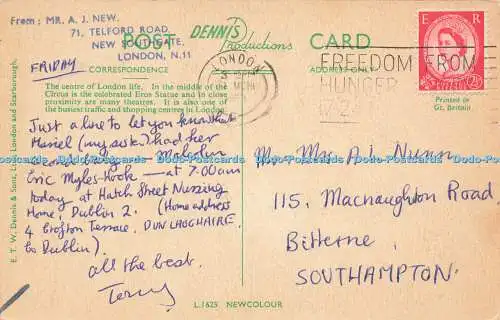 From; MR. A. J. NEW.
71, TELFORD ROAD,
NEW SOUTHGATE,
LONDON, N.11
FRIDAY
POST
DENNIS
Productions
CARD
CORRESPONDENCE
ADDRESS ONLY
The centre of London life. In the middle of the
Circus is the celebrated Eros Statue and in close
proximity are many theatres. It is also one of
the busiest traffic and shopping centres in London.
Just a line to let you know that
Meriel (my sister) had her
second baby – Malcolm
Eric Myles-Hook – at 7.00am
today at Hatch Street Nursing
Home, Dublin 2. (Home address
4 Crofton Terrace, DUN LAOGHAIRE,
Co Dublin).
all the best.
Terry
E. T. W. Dennis & Sons, Ltd., London and Scarborough.
L.1625 NEWCOLOUR
LONDON
FREEDOM FROM
HUNGER
E R
2½
Printed in
Gt. Britain
Mr. A J Nunn
115, Macnaughton Road,
Bitterne,
SOUTHAMPTON.
Dodo-Postcards